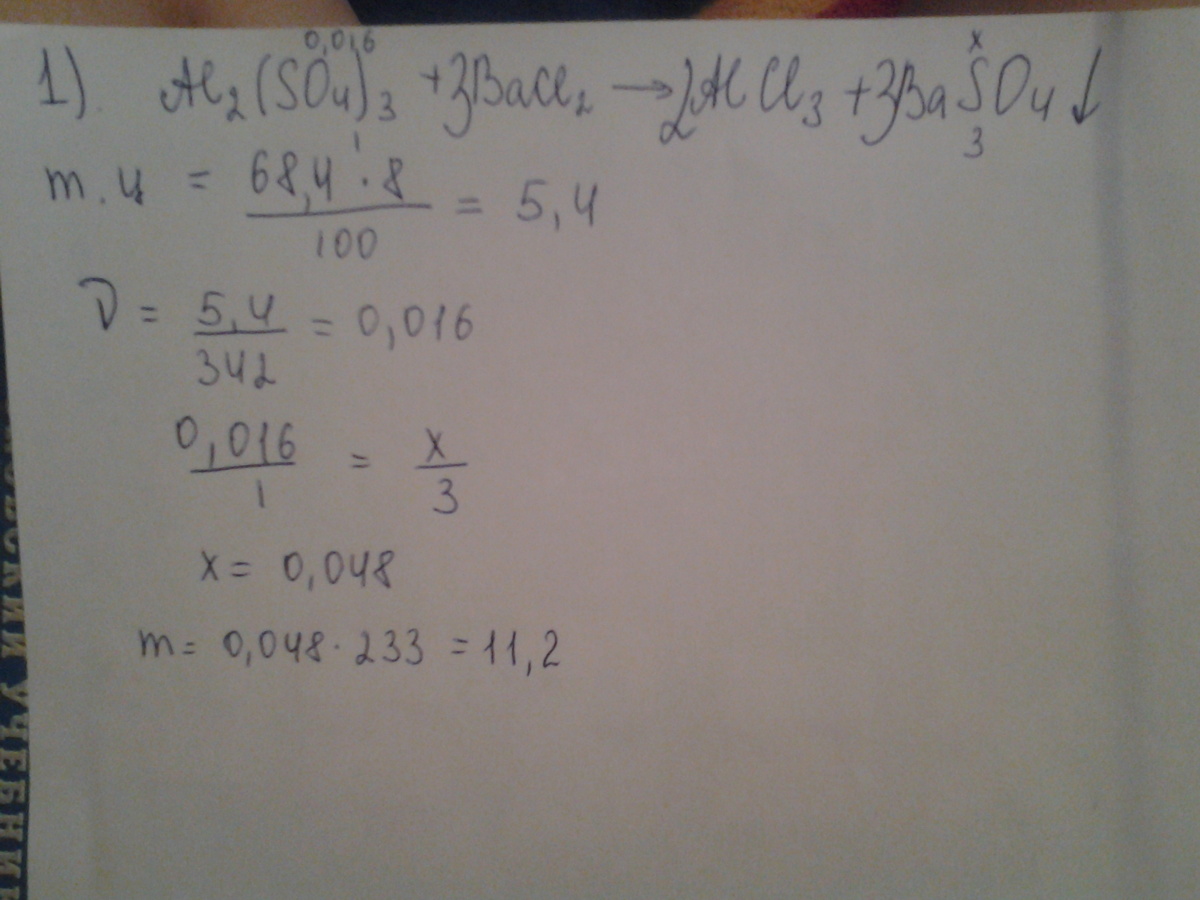 0,016 x
1). Al₂(SO₄)₃ + 3BaCl₂ → 2AlCl₃ + 3BaSO₄↓
1 3
m.ч = 68,4 · 8 / 100 = 5,4
ν = 5,4 / 342 = 0,016
0,016 / 1 = x / 3
x = 0,048
m = 0,048 · 233 = 11,2
СКИЙ УЧЕБНИК